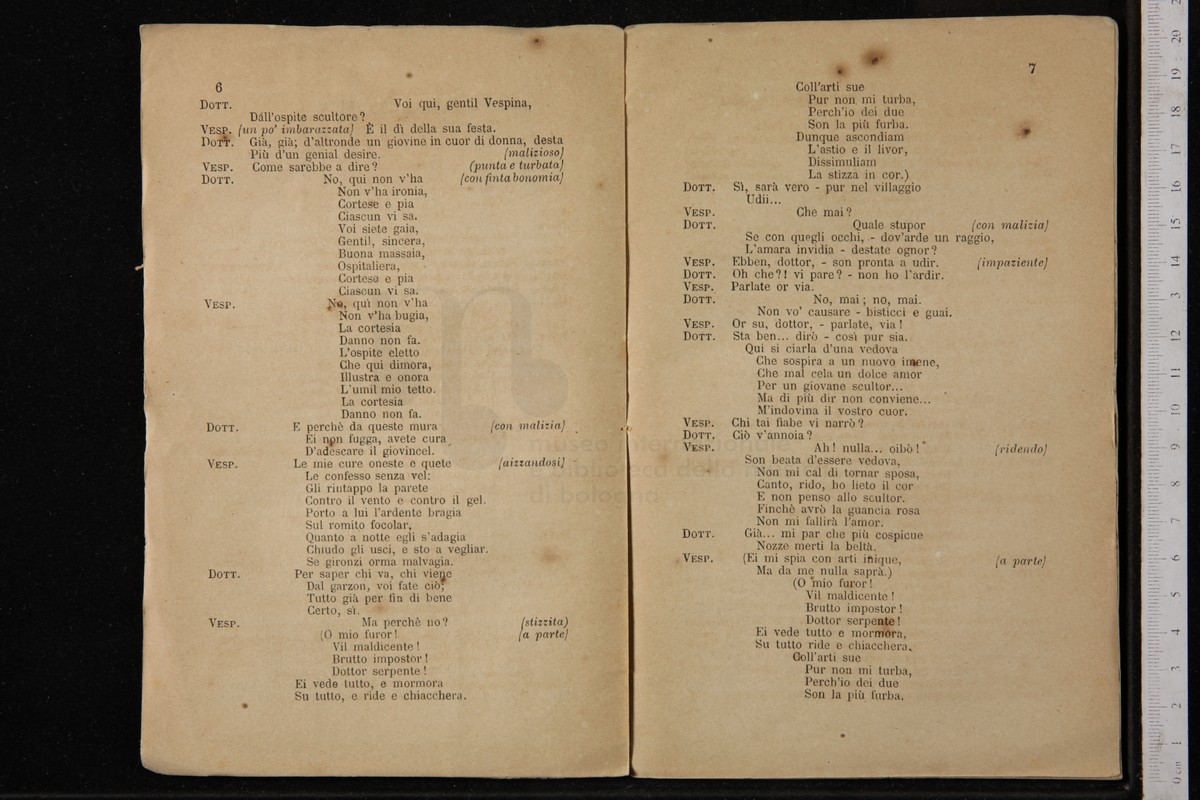 6
DOTT. Voi qui, gentil Vespina,
Dall'ospite scultore?
VESP. (un po' imbarazzata) È il dì della sua festa.
DOTT. Già, già; d'altronde un giovine in cuor di donna, desta
Più d'un genial desire. (malizioso)
VESP. Come sarebbe a dire? (punta e turbata)
DOTT. No, qui non v'ha (con finta bonomia)
Non v'ha ironia,
Cortese e pia
Ciascun vi sa.
Voi siete gaia,
Gentil, sincera,
Buona massaia,
Ospitaliera,
Cortese e pia
Ciascun vi sa.
VESP. No, qui non v'ha
Non v'ha bugia,
La cortesia
Danno non fa.
L'ospite eletto
Che qui dimora,
Illustra e onora
L'umil mio tetto.
La cortesia
Danno non fa.
DOTT. E perchè da queste mura (con malizia)
Ei non fugga, avete cura
D'adescare il giovincel.
VESP. Le mie cure oneste e quete (aizzandosi)
Le confesso senza vel:
Gli rintappo la parete
Contro il vento e contro il gel.
Porto a lui l'ardente bragia
Sul romito focolar,
Quanto a notte egli s'adagia
Chiudo gli usci, e sto a vegliar.
Se gironzi orma malvagia.
DOTT. Per saper chi va, chi viene
Dal garzon, voi fate ciò;
Tutto già per fin di bene
Certo, sì.
VESP. Ma perchè no? (stizzita)
(O mio furor! (a parte)
Vil maldicente!
Brutto impostor!
Dottor serpente!
Ei vede tutto, e mormora
Su tutto, e ride e chiacchera.
7
Coll'arti sue
Pur non mi turba,
Perch'io dei due
Son la più furba.
Dunque ascondiam
L'astio e il livor,
Dissimuliam
La stizza in cor.)
DOTT. Sì, sarà vero - pur nel villaggio
Udii...
VESP. Che mai?
DOTT. Quale stupor (con malizia)
Se con quegli occhi, - dov'arde un raggio,
L'amara invidia - destate ognor?
VESP. Ebben, dottor, - son pronta a udir. (impaziente)
DOTT. Oh che?! vi pare? - non ho l'ardir.
VESP. Parlate or via.
DOTT. No, mai; no, mai.
Non vo' causare - bisticci e guai.
VESP. Or su, dottor, - parlate, via!
DOTT. Sta ben... dirò - così pur sia.
Qui si ciarla d'una vedova
Che sospira a un nuovo imene,
Che mal cela un dolce amor
Per un giovane scultor...
Ma di più dir non conviene...
M'indovina il vostro cuor.
VESP. Chi tai fiabe vi narrò?
DOTT. Ciò v'annoia?
VESP. Ah! nulla... oibò! (ridendo)
Son beata d'essere vedova,
Non mi cal di tornar sposa,
Canto, rido, ho lieto il cor
E non penso allo scultor.
Finchè avrò la guancia rosa
Non mi fallirà l'amor.
DOTT. Già... mi par che più cospicue
Nozze merti la beltà.
VESP. (Ei mi spia con arti inique, (a parte)
Ma da me nulla saprà.)
(O mio furor!
Vil maldicente!
Brutto impostor!
Dottor serpente!
Ei vede tutto e mormora,
Su tutto ride e chiacchera.
Coll'arti sue
Pur non mi turba,
Perch'io dei due
Son la più furba.